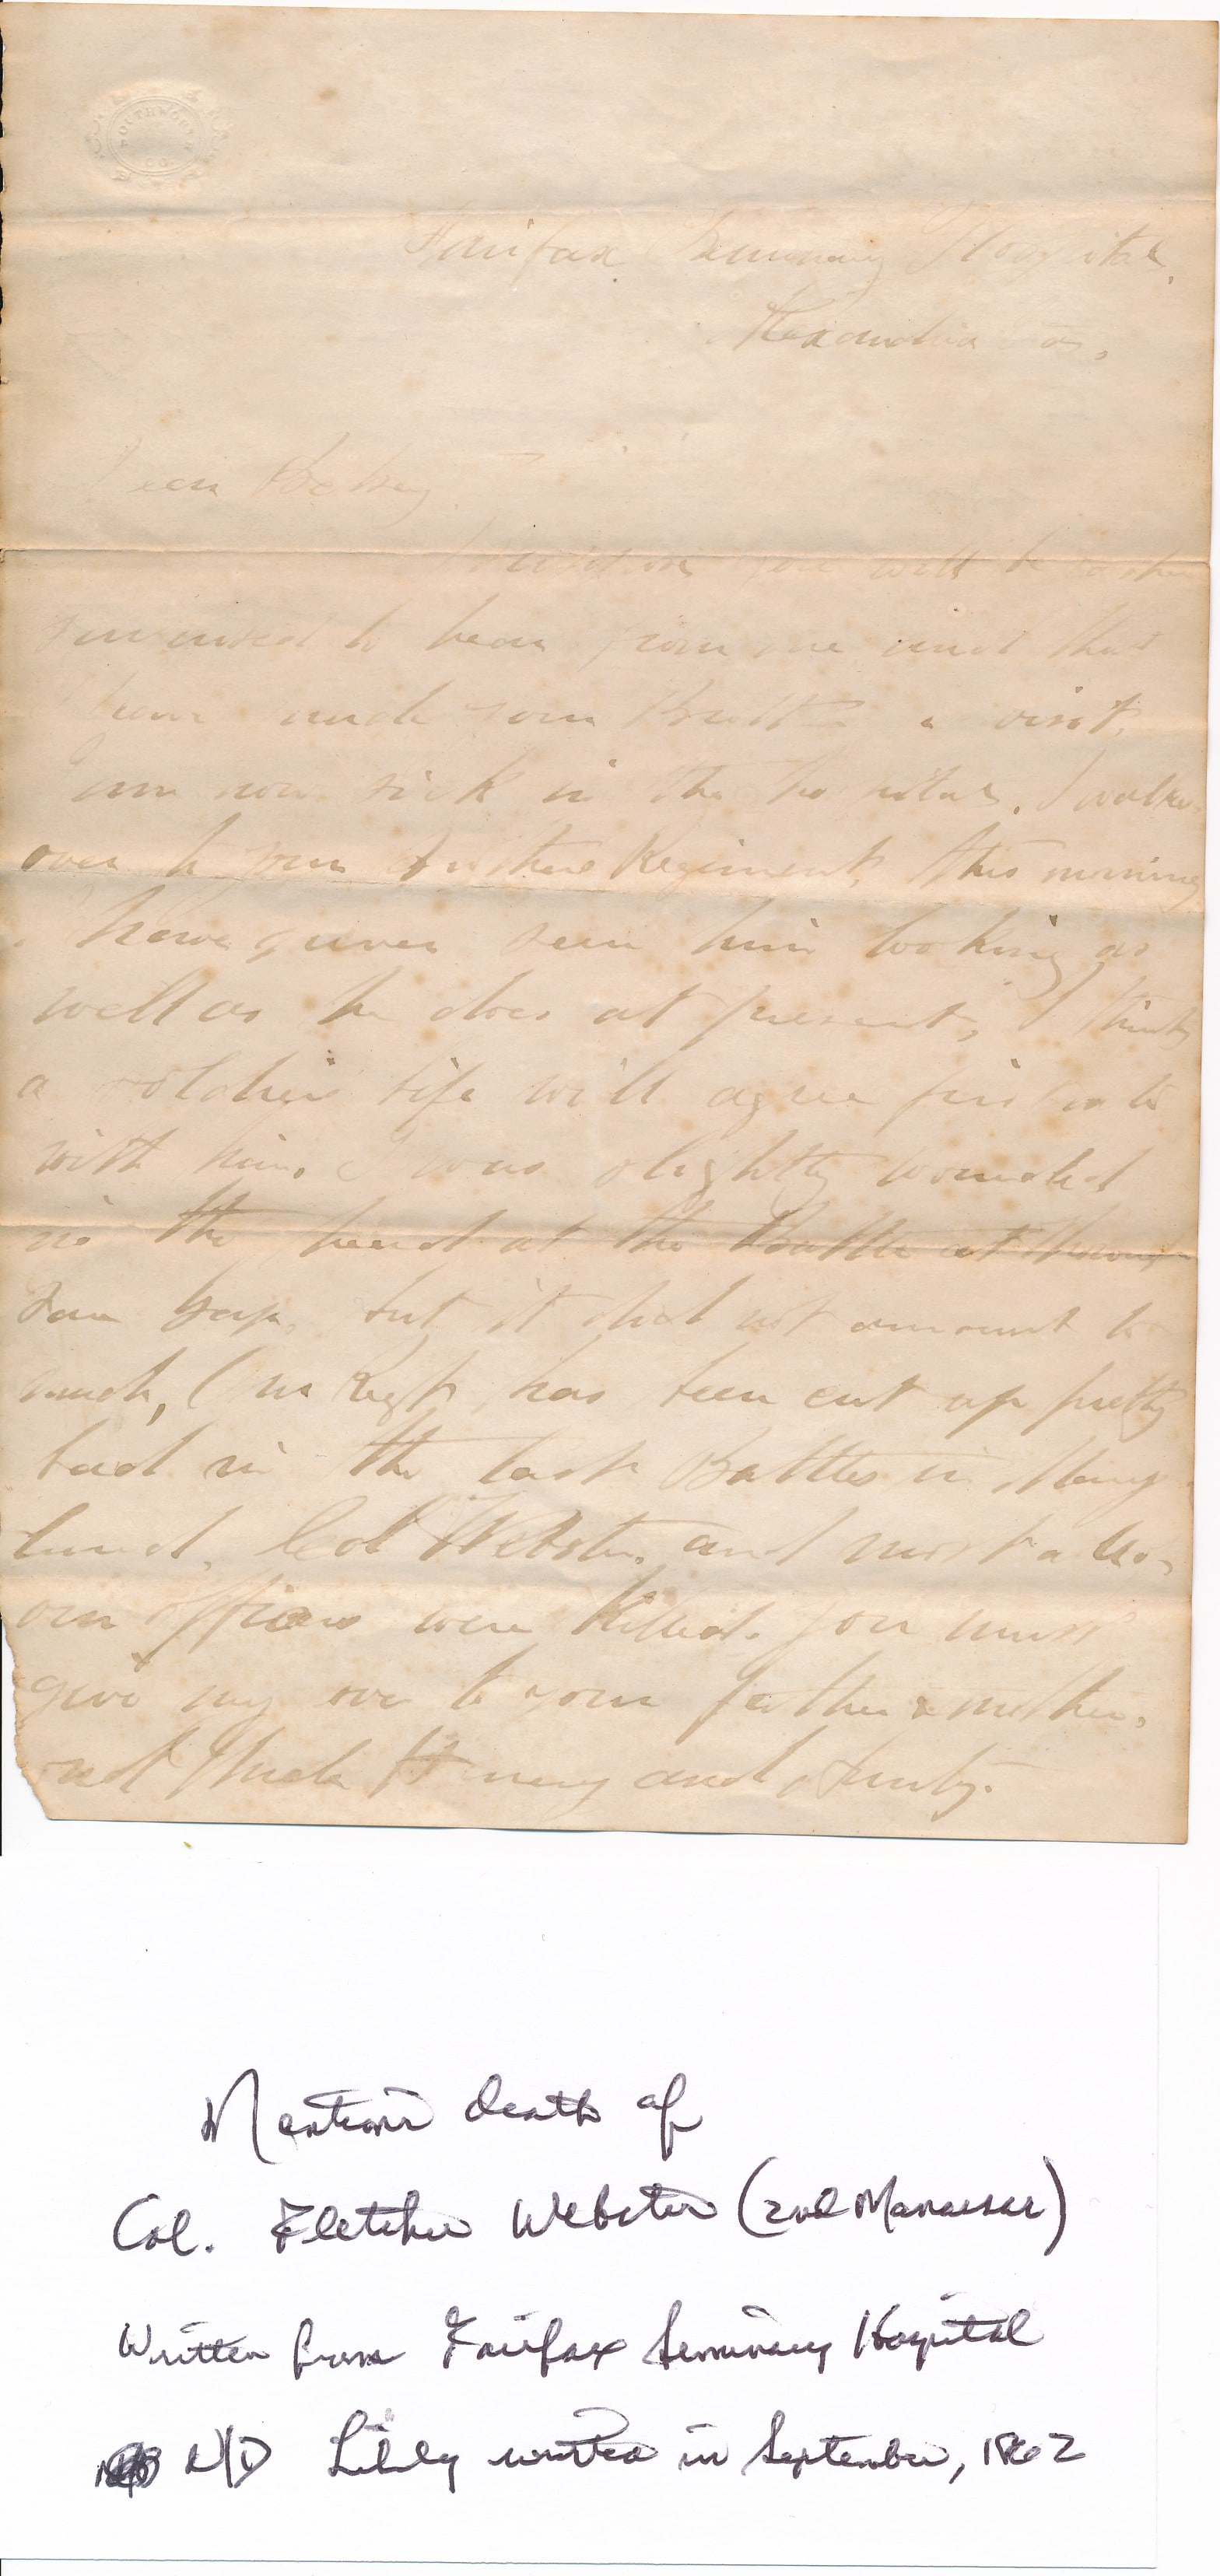 SOUTHWORTH
CO.
Fairfax Seminary Hospital.
Alexandria Va,
Dear
you will be rather
surprised to hear from me and that
I have made your Brother a visit,
I am now sick in the hospital. I walked
over to your Brothers Regiment, this morning
I have never seen him looking as
well as he does at present, I think
a soldiers life will agree first rate
with him. I was slightly wounded
in the head at the Battle at Thorough
fare Gap, but it did not amount to
much, Our Regt has been cut up pretty
bad in the last Battles in Mary
land. Col Webster. and most all
our officers were Killed. you must
give my love to your father & mother.
and and
Mentions death of
Col. Fletcher Webster (2nd Manassas)
Written from Fairfax Seminary Hospital
N/D Likely written in September, 1862